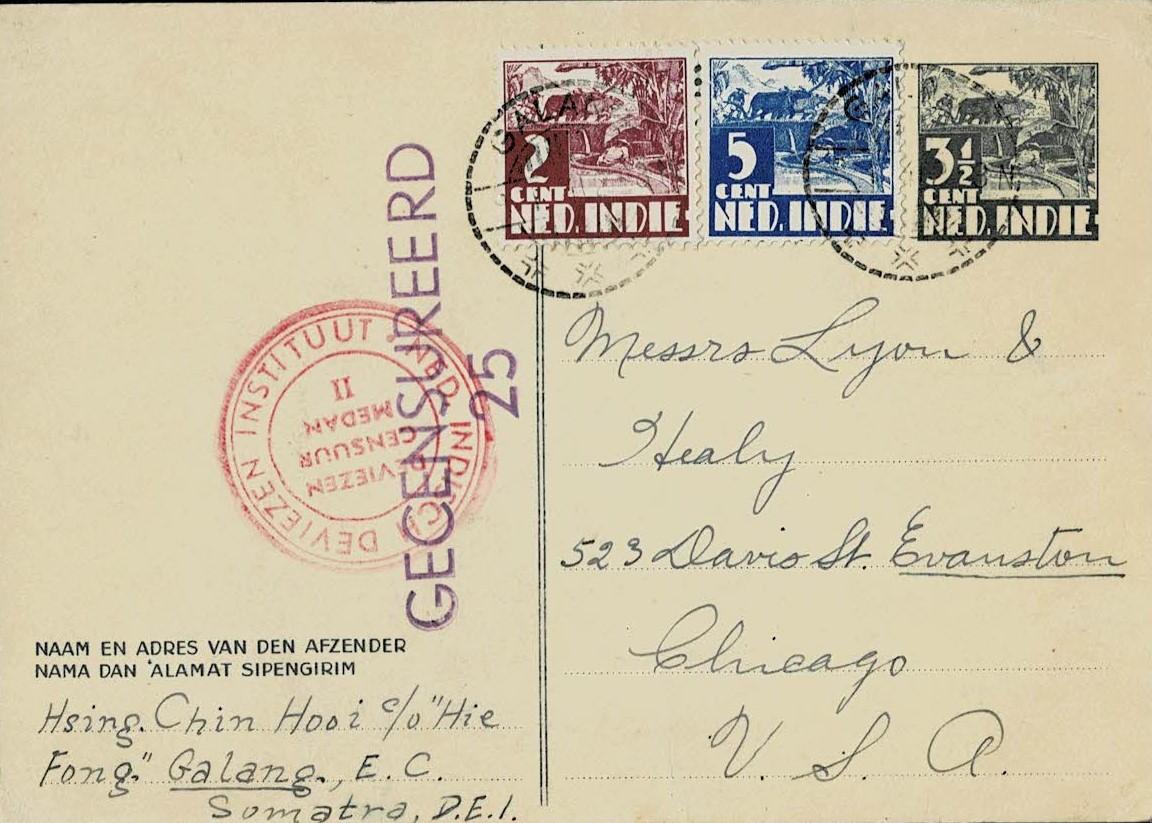 2
CENT
NED. INDIE
5
CENT
NED. INDIE
3½
CENT
NED. INDIE
GALA
GECENSUREERD
25
DEVIEZEN INSTITUUT NED. INDISCH
DEVIEZEN
CENSUUR
MEDAN
II
Messrs Lyon &
Healy
523 Davis St. Evanston
Chicago
U. S. A.
NAAM EN ADRES VAN DEN AFZENDER
NAMA DAN 'ALAMAT SIPENGIRIM
Hsing. Chin Hooi c/o "Hie
Fong." Galang., E. C.
Sumatra, D.E.I.